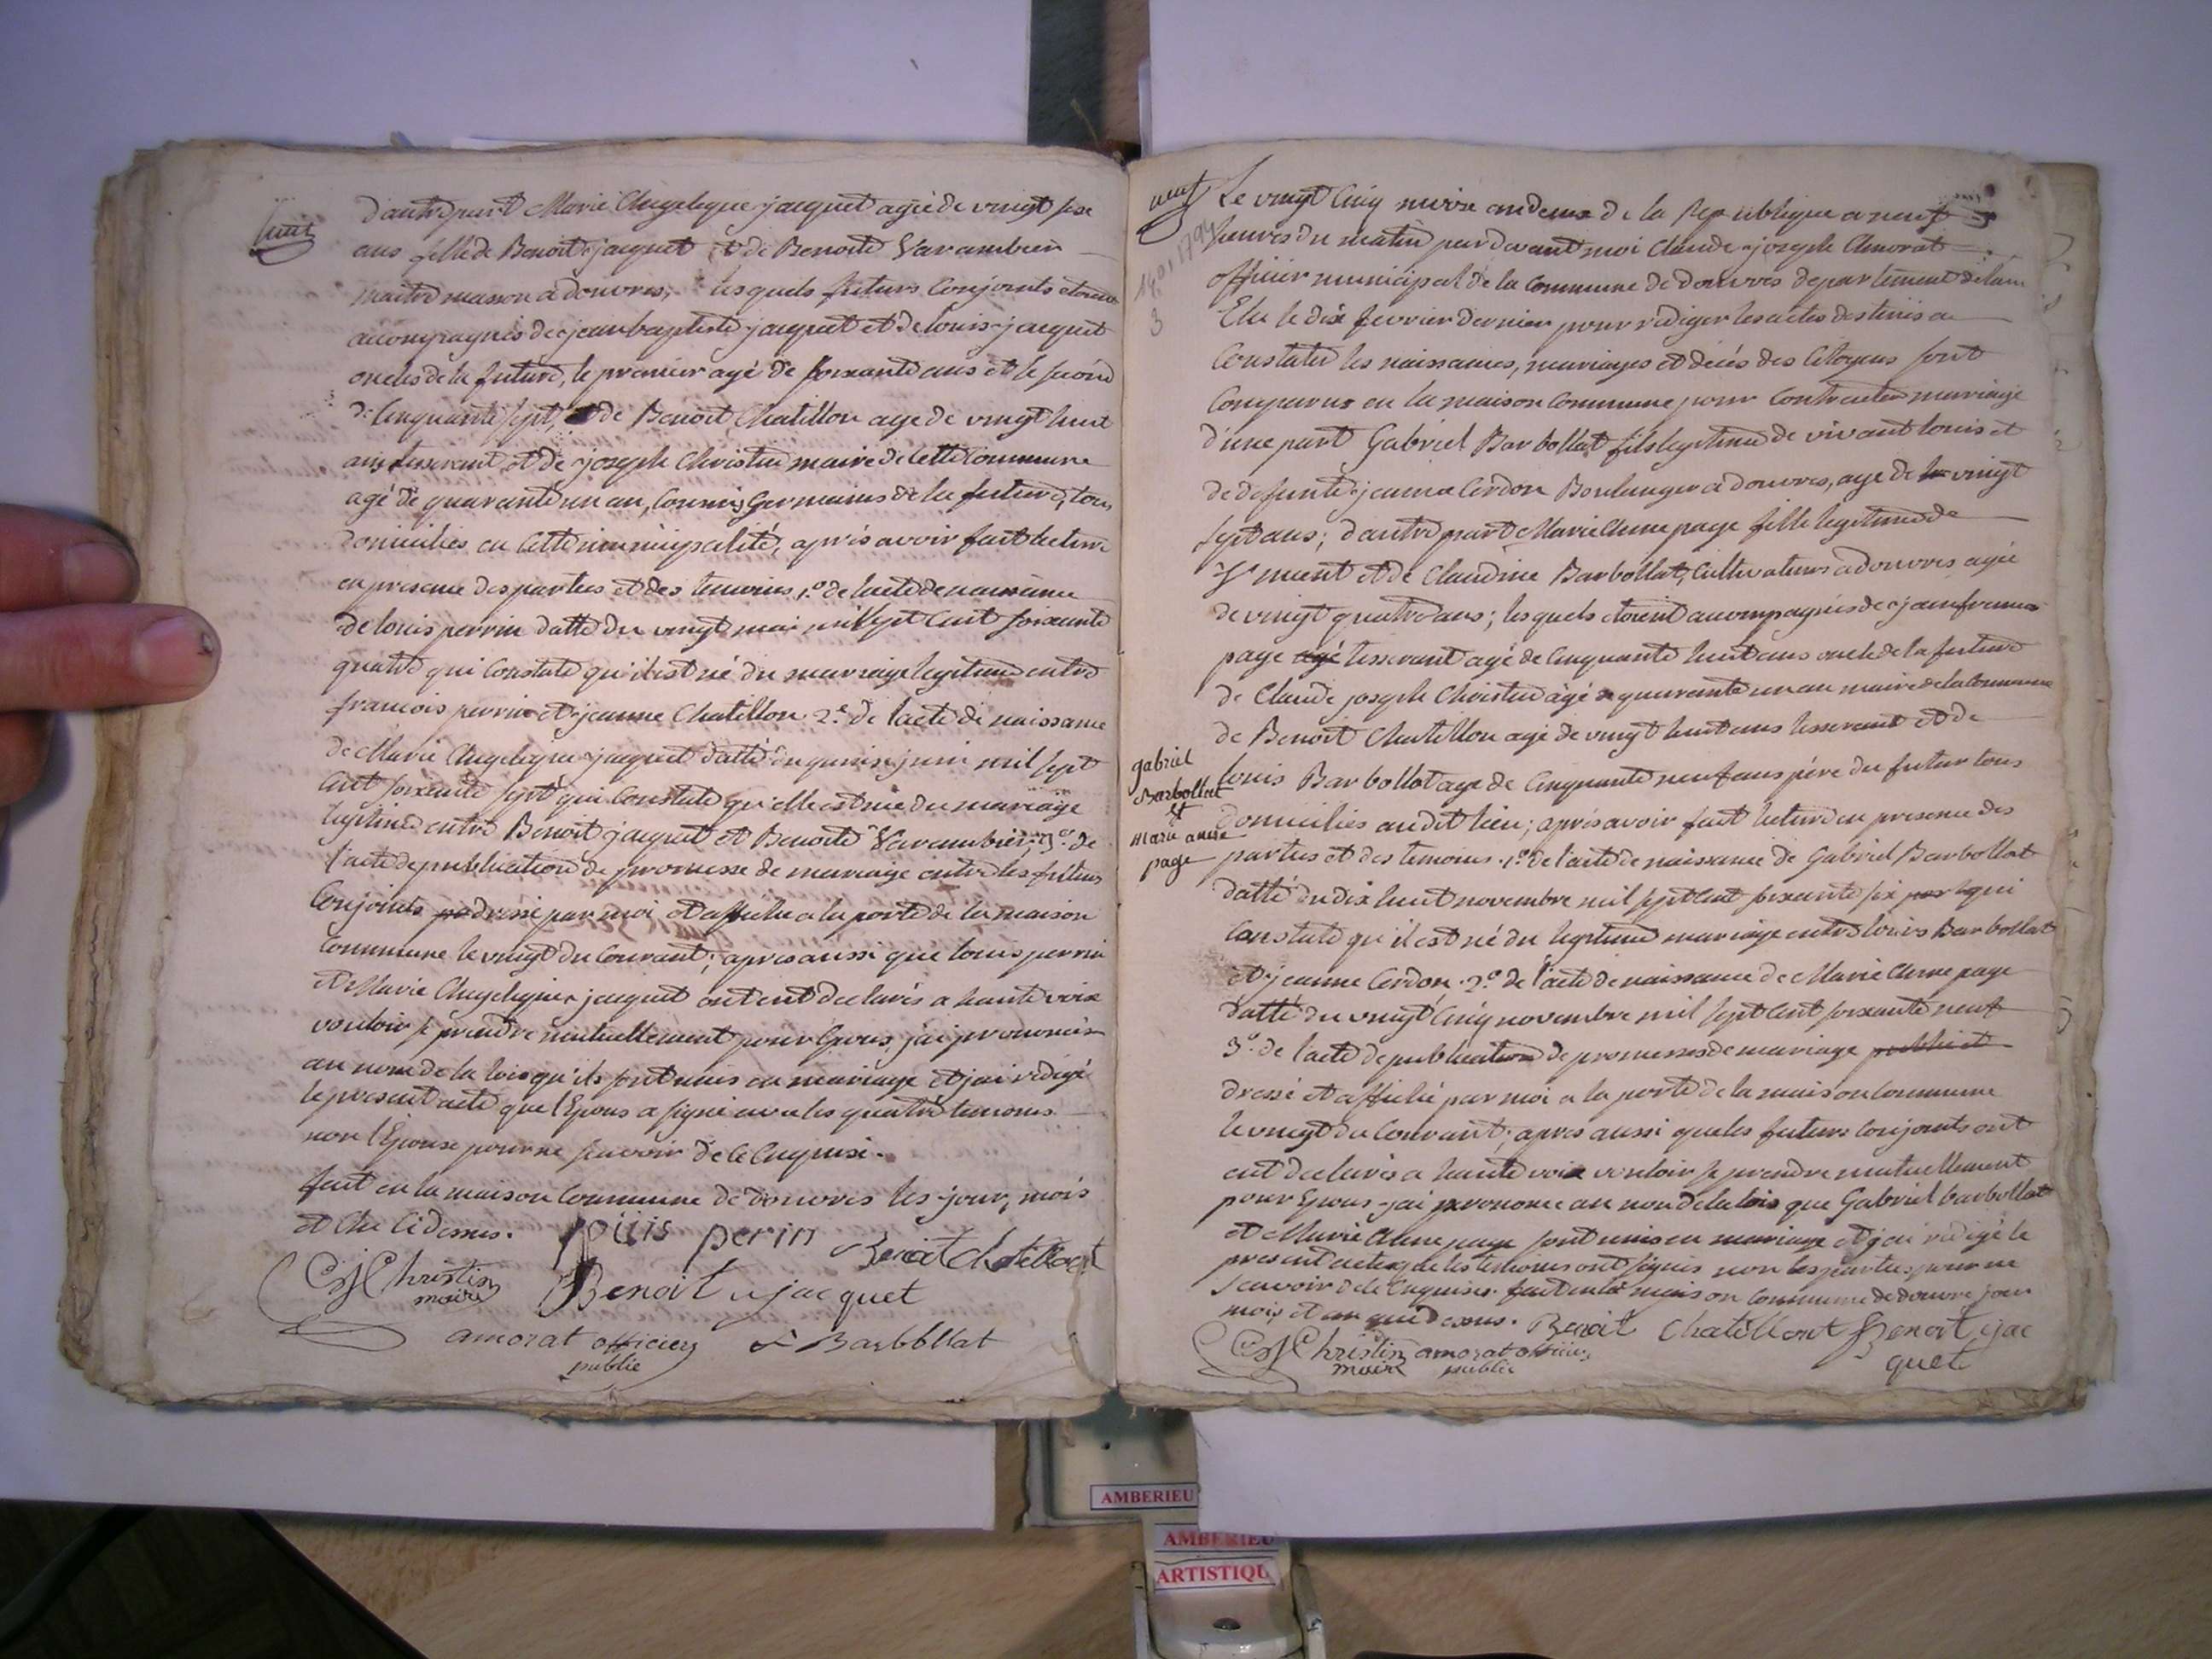 huit
d'autre part Marie Angelique jacquet agée de vingt six
ans fille de Benoit jacquet et de Benoite Varambier
maitre masson a douvres; lesquels futurs Conjoints etoient
acompagnés de jean baptiste jacquet et de louis jacquet
oncles de la future, le premier agé de soixante ans et le second
de Cinquante sept, et de Benoit Chatillon age de vingt huit
ans tisserant et de joseph Christin maire de Cette Commune
agé de quarante un an, Cousins Germains de la future, tous
domiciliés en Cette municipalité, après avoir fait lecture
en presence des parties et des temoins, 1.° de l'acte de naissance
de louis perrin datté du vingt mai mil sept Cent soixante
quatre qui Constate qu'il est né du mariage legitime entre
francois perrin et jeanne Chatillon 2.e de l'acte de naissance
de Marie Angelique jacquet datté du quinze juin mil sept
Cent soixante sept qui Constate qu'elle est née du mariage
legitime entre Benoit jacquet et Benoite Varambier; 3.° de
l'acte de publication de promesse de mariage entre les futurs
Conjoints dressé par moi et affiché a la porte de la maison
Commune le vingt du Courant; apres aussi que louis perrin
et Marie Angelique jacquet ont eut declarés a haute voix
vouloir se prendre mutuellement pour Epoux, j'ai prononcés
au nom de la loi qu'ils sont unis en mariage et j'ai redigé
le present acte que l'Epoux a signé avec les quatre temoins
non l'Epouse pour ne scavoir de Ce Enquise.
fait en la maison Commune de douvres les jour, mois
et An Cidessus. louis perin Benoit Chatillont
CJ Christin maire Benoit jacquet
amorat officier public L Barbollat
neuf
14. 01 1794
3
Le vingt Cinq nivose an deux de la Republique a neuf
heures du matin par devant moi Claude joseph Amorat
officier municipal de la Commune de douvres departement de lain
Elu le dix fevrier dernier pour rediger les actes destinés a
Constater les naissances, mariages et decés des Citoyens sont
Comparus en la maison Commune pour Contracter mariage
d'une part Gabriel Barbollat fils legitime de vivant louis et
de defunte jeanne Cordon Boulanger a douvres, age de vingt
sept ans; d'autre part Marie Anne page fille legitime de
et de Claudine Barbollat, Cultivateurs a douvres agée
de vingt quatre ans; lesquels etoient acompagnés de jean francois
page agé tisserant agé de Cinquante huit ans oncle de la future
de Claude joseph Christin âgé de quarante un an maire de la Commune
de Benoit Chatillon agé de vingt huit ans tisserant et de
louis Barbollat age de Cinquante neuf ans père du futur tous
gabriel
Barbollat
et
marie anne
page
domiciliés audit lieu; après avoir fait lecture en presence des
parties et des temoins 1.° de l'acte de naissance de Gabriel Barbollat
datté du dix huit novembre mil sept Cent soixante six qui
Constate qu'il est né du legitime mariage entre louis Barbollat
et jeanne Cordon. 2.° de l'acte de naissance de Marie Anne page
datté du vingt Cinq novembre mil sept Cent soixante neuf
3.° de l'acte de publication de promesses de mariage publié et
dressé et affiché par moi a la porte de la maison Commune
le vingt du Courant; apres aussi que les futurs Conjoints ont
eut declarés a haute voix vouloir se prendre mutuellement
pour Epoux j'ai prononcé au nom de la lois que Gabriel barbollat
et Marie Anne page sont unis en mariage et j'ai redigé le
present acte que les temoins ont signés non les parties pour ne
scavoir de Ce Enquises. fait en la maison Commune de douvre jour
mois et an que dessus. Benoit Chatillont Benoit jac
quet
CJ Christin maire amorat officier public
AMBERIEU
AMBERIEU
ARTISTIQU